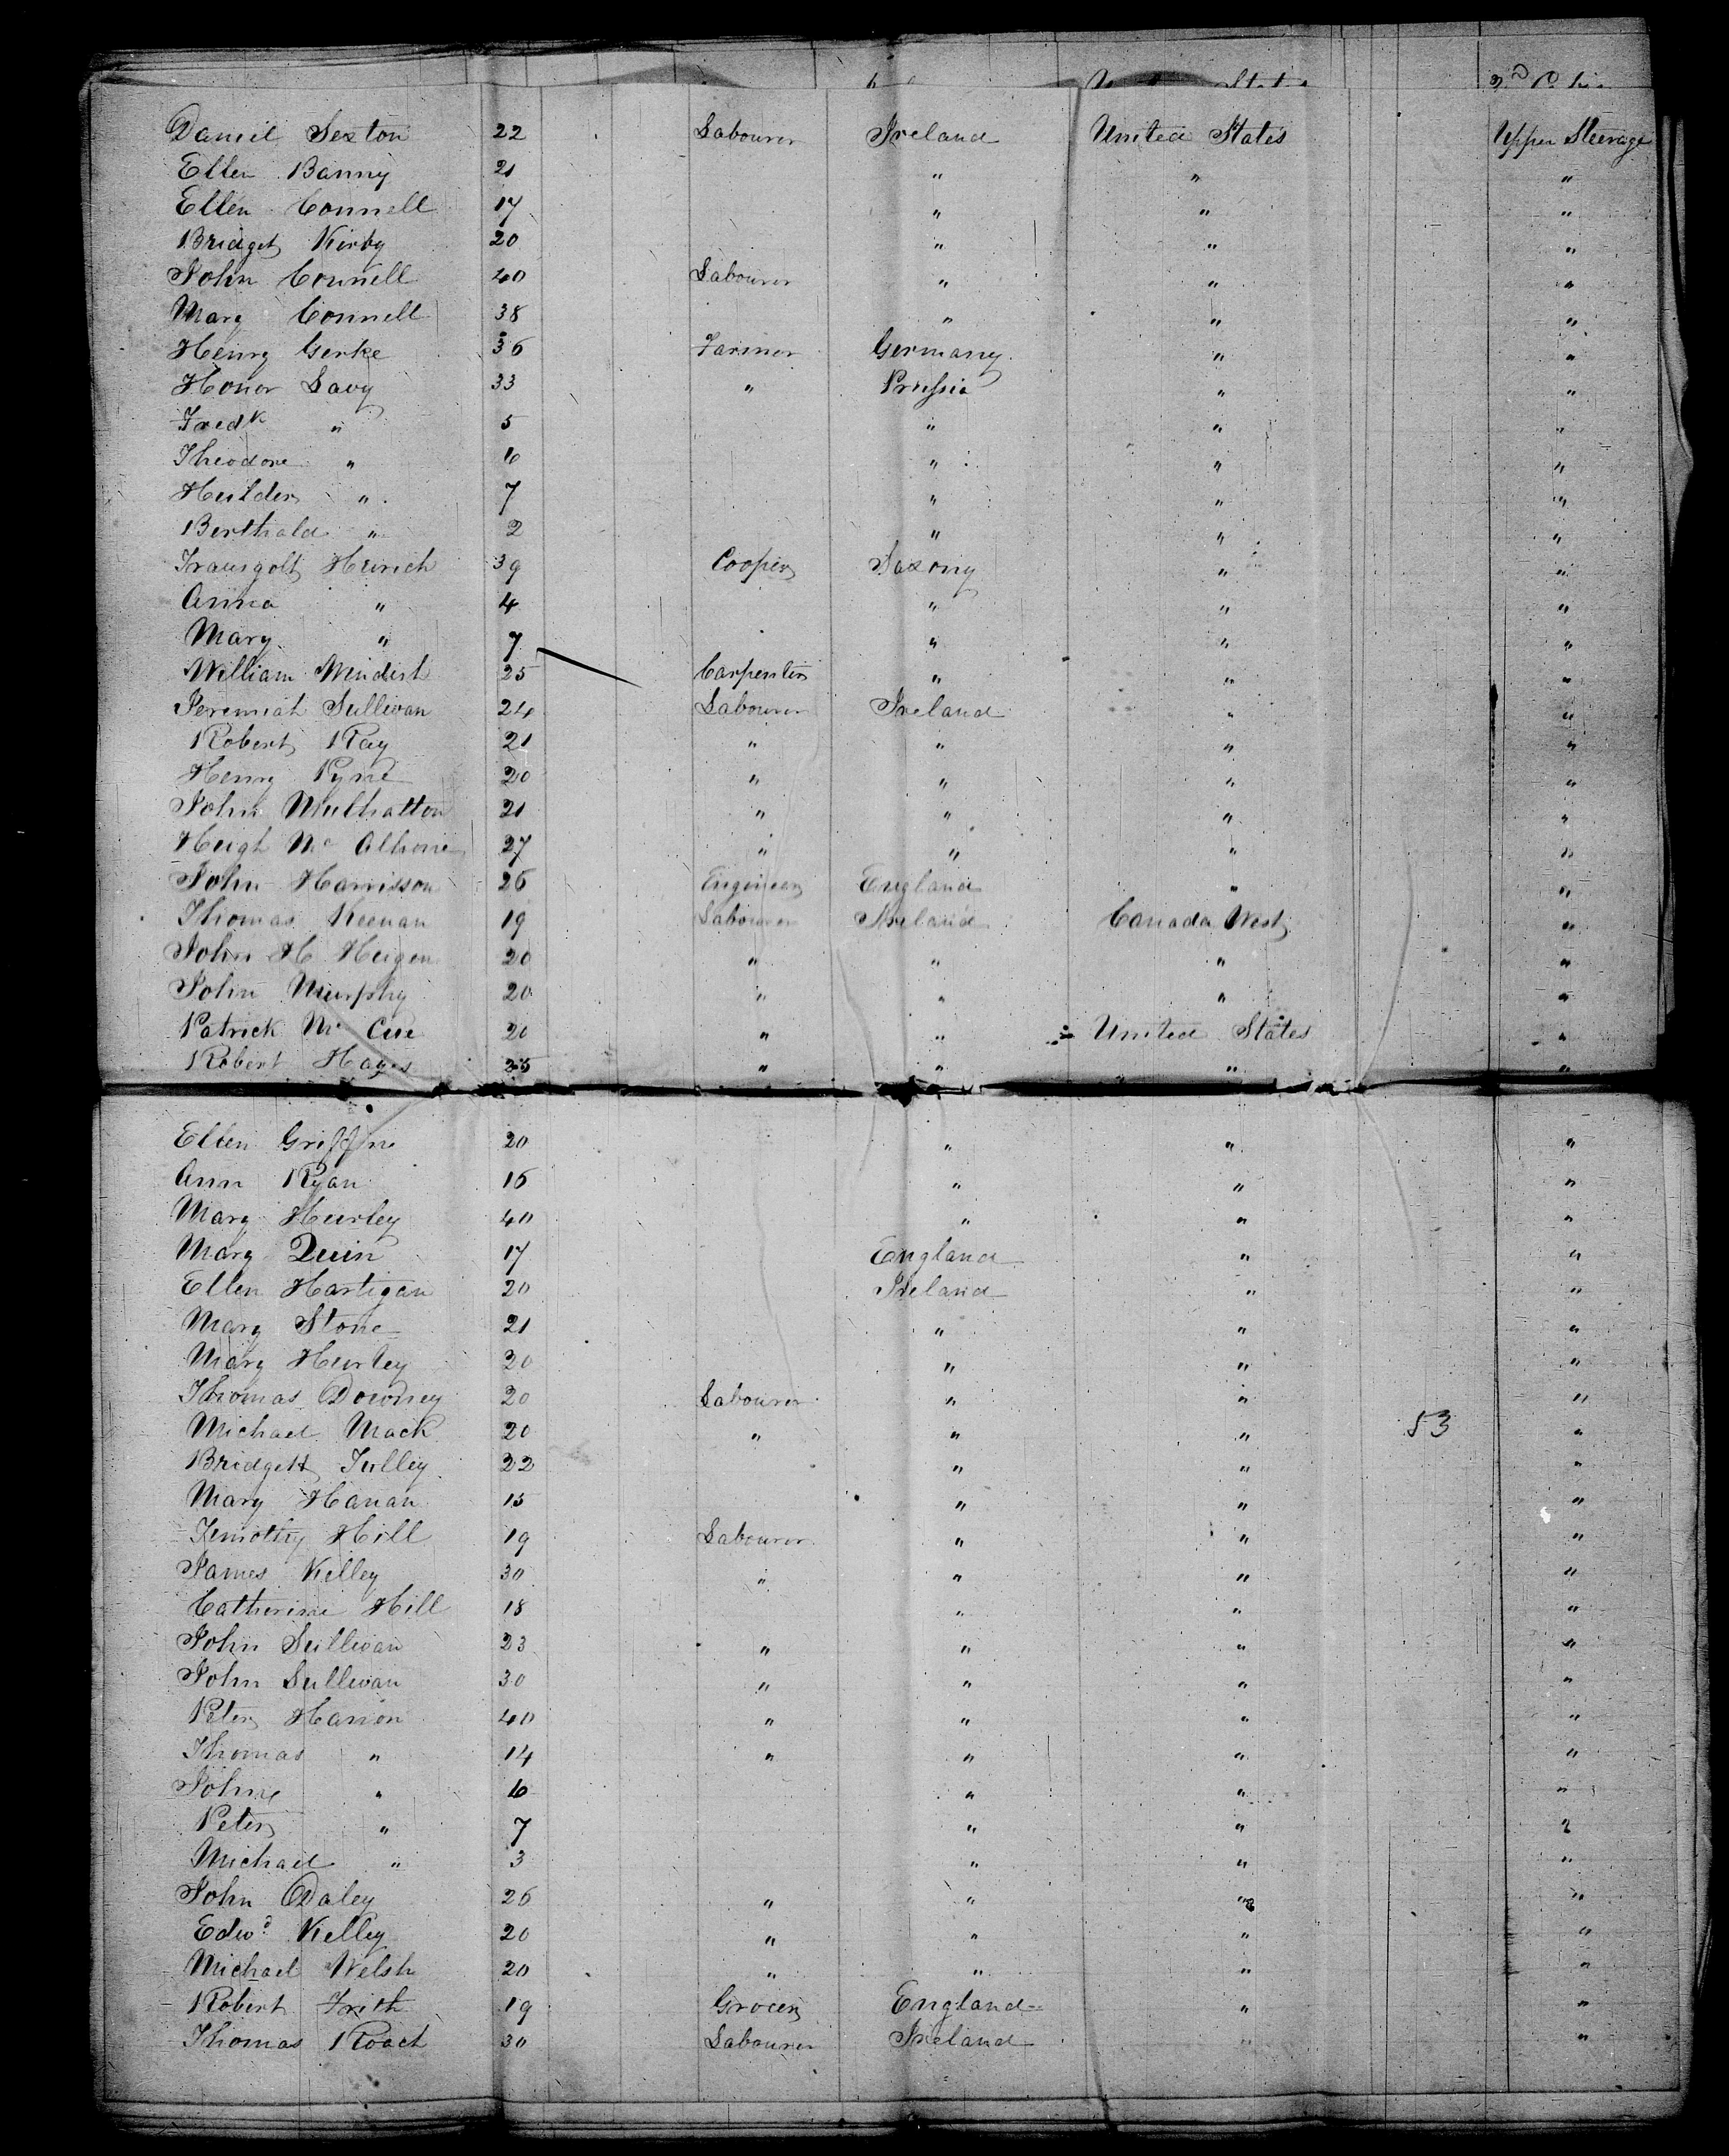 United States
Daniel Sexton 22 Labourer Ireland United States Upper Steerage
Ellen Banny 21 " " "
Ellen Connell 17 " " "
Bridget Kirby 20 " " "
John Connell 40 Labourer " " "
Mary Connell 38 " " "
Henry Gerke 36 Farmer Germany " "
Honor Lavy 33 " Prussia " "
Fredk " 5 " " "
Theodore " 6 " " "
" 7 " " "
Berthald " 2 " " "
Trausgolt Heinrich 39 Cooper Saxony " "
Anna " 4 " " "
Mary " 7 " " "
William 25 Carpenter " " "
Jeremiah Sullivan 24 Labourer Ireland " "
Robert Ray 21 " " " "
Henry Pyne 20 " " " "
John Mulhatton 21 " " " "
Hugh Mc Alhone 27 " " " "
John Harrisson 26 Engineer England " "
Thomas Keenan 19 Labourer Ireland Canada West "
John H Hugen 20 " " " "
John Murphy 20 " " " "
Patrick Mc Cue 20 " " United States "
Robert Hayes 25 " " " "
Ellen Griffin 20 " " "
Ann Ryan 16 " " "
Mary Hurley 40 " " "
Mary Quin 17 England " "
Ellen Hartigan 20 Ireland " "
Mary Stone 21 " " "
Mary Hurley 20 " " "
Thomas Downey 20 Labourer " " "
Michael Mack 20 " " " 53 "
Bridgett Tulley 22 " " "
Mary Hanan 15 " " "
Timothy Hill 19 Labourer " " "
James Kelley 30 " " " "
Catherine Hill 18 " " "
John Sullivan 23 " " " "
John Sullivan 30 " " " "
Peter Hanon 40 " " " "
Thomas " 14 " " " "
John " 10 " " "
Peter " 7 " " "
Michael " 3 " " "
John Daley 26 " " " "
Edwd Kelley 20 " " " "
Michael Welsh 20 " " " "
Robert Frith 19 Grocer England " "
Thomas Roach 30 Labourer Ireland " "